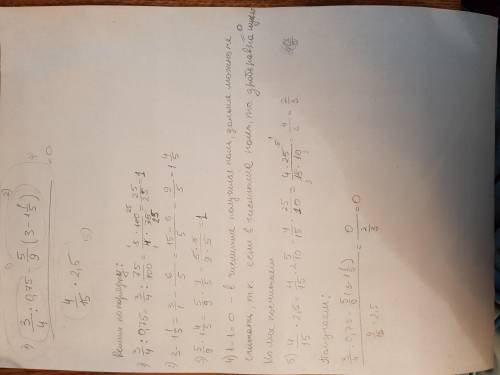 (3/4 : 0,75 - 5/9 (3 - 1 1/5)) / (4/15 · 2,5) = 0
Решим по порядку:
1) 3/4 : 0,75 = 3/4 : 75/100 = 3 · 100 / 4 · 75 = 25/25 = 1
2) 3 - 1 1/5 = 3/1 - 6/5 = 15-6/5 = 9/5 = 1 4/5
3) 5/9 · 1 4/5 = 5/9 · 9/5 = 5·9/9·5 = 1
4) 1-1=0 - в числителе получился ноль, дальше можно не
считать, т.к. если в числителе ноль, то дробь равна нулю = 0
Но мы посчитаем
5) 4/15 · 2,5 = 4/15 · 2 5/10 = 4/15 · 25/10 = 4·25/15·10 = 4/6 = 2/3
Получили:
3/4 : 0,75 - 5/9 (3 - 1 1/5) / 4/15 · 2,5 = 0 / 2/3 = 0